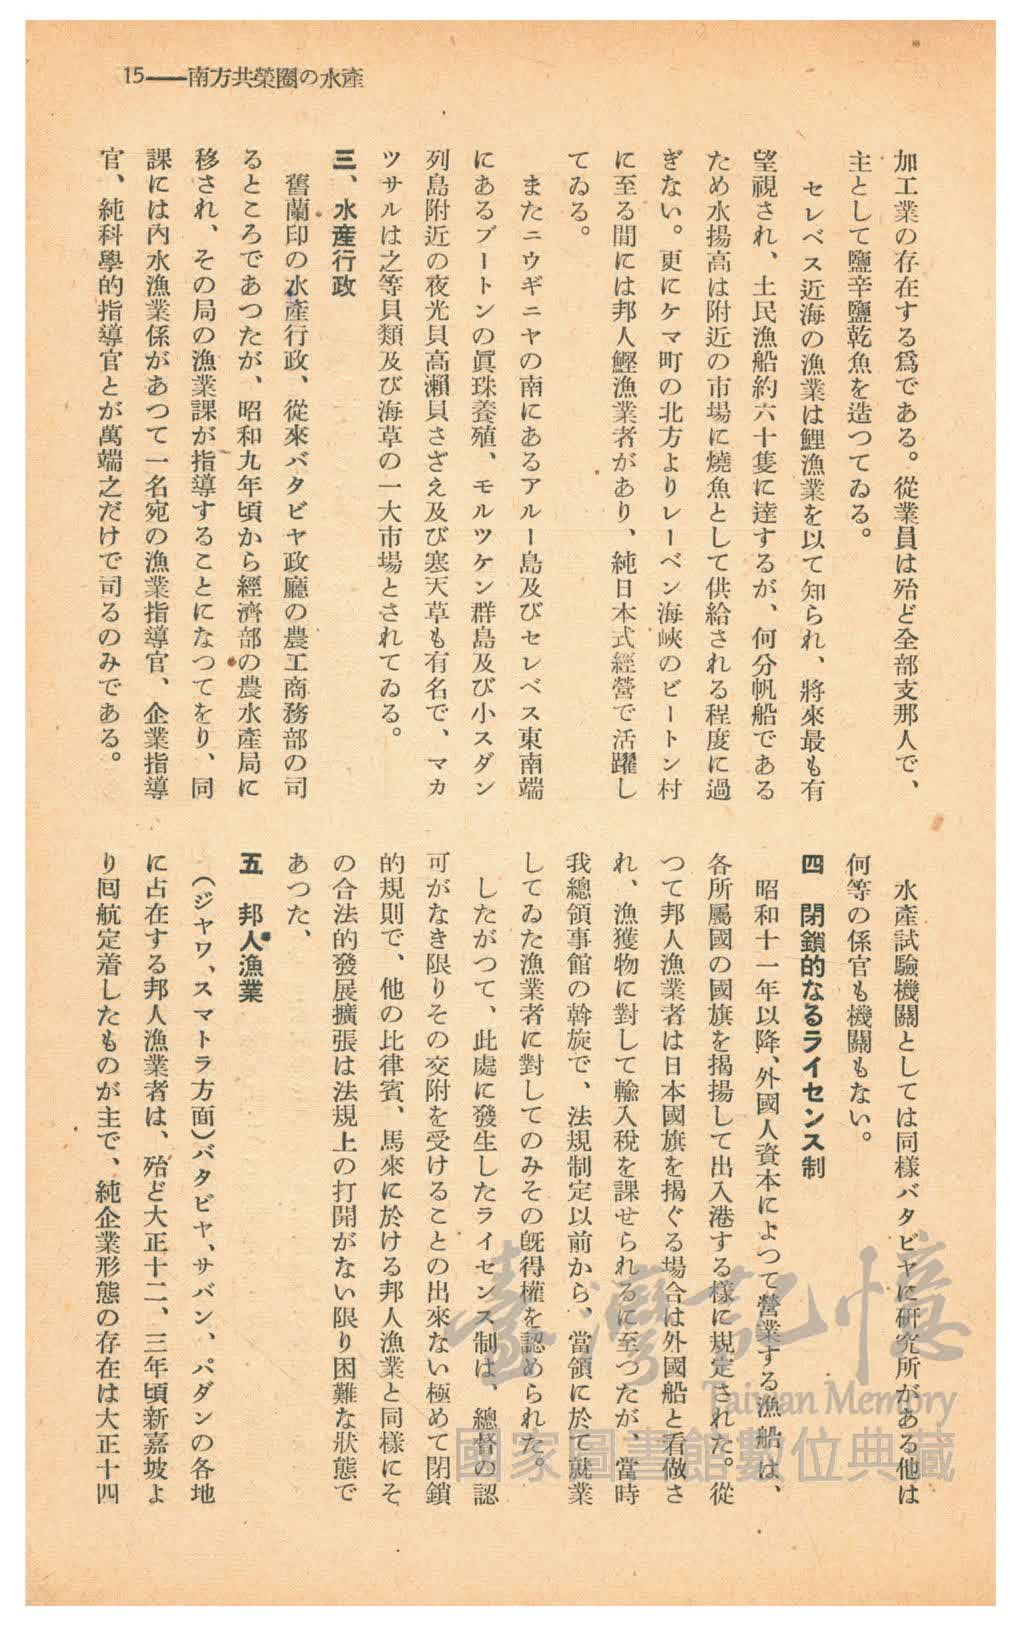 15——南方共榮圈の水產
加工業の存在する爲である。從業員は殆ど全部支那人で、
主として鹽辛鹽乾魚を造つてゐる。
セレベス近海の漁業は鯉漁業を以て知られ、將來最も有
望視され、土民漁船約六十隻に達するが、何分帆船である
ため水揚高は附近の市場に燒魚として供給される程度に過
ぎない。更にケマ町の北方よりレーベン海峽のビートン村
に至る間には邦人鰹漁業者があり、純日本式經營で活躍し
てゐる。
またニウギニヤの南にあるアルー島及びセレベス東南端
にあるブートンの眞珠養殖、モルツケン群島及び小スダン
列島附近の夜光貝高瀨貝さざえ及び寒天草も有名で、マカ
ツサルは之等貝類及び海草の一大市場とされてゐる。
三、水産行政
舊蘭印の水產行政、從來バタビヤ政廳の農工商務部の司
るところであつたが、昭和九年頃から經濟部の農水產局に
移され、その局の漁業課が指導することになつてをり、同
課には內水漁業係があつて一名宛の漁業指導官、企業指導
官、純科學的指導官とが萬端之だけで司るのみである。
水產試驗機關としては同樣バタビヤに研究所がある他は
何等の係官も機關もない。
四 閉鎖的なるライセンス制
昭和十一年以降、外國人資本によつて營業する漁船は、
各所屬國の國旗を揭揚して出入港する樣に規定された。從
つて邦人漁業者は日本國旗を揭ぐる場合は外國船と看做さ
れ、漁獲物に對して輸入稅を課せられるに至つたが、當時
我總領事館の斡旋で、法規制定以前から、當領に於て就業
してゐた漁業者に對してのみその旣得權を認められた。
したがつて、此處に發生したライセンス制は、總督の認
可がなき限りその交附を受けることの出來ない極めて閉鎖
的規則で、他の比律賓、馬來に於ける邦人漁業と同樣にそ
の合法的發展擴張は法規上の打開がない限り困難な狀態で
あつた、
五 邦人漁業
(ジヤワ、スマトラ方面)バタビヤ、サバン、パダンの各地
に占在する邦人漁業者は、殆ど大正十二、三年頃新嘉坡よ
り囘航定着したものが主で、純企業形態の存在は大正十四
臺灣記憶
Taiwan Memory
國家圖書館數位典藏